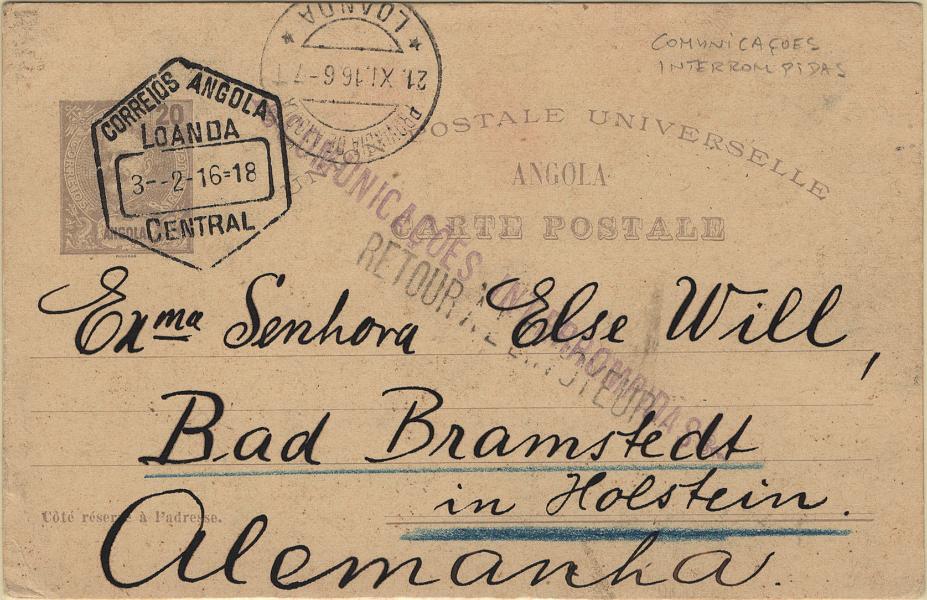 COMUNICAÇOES
INTERROMPIDAS
LOANDA
21. XI. 16 6-7 T
PROVINCIA DE ANGOLA
CORREIOS ANGOLA
LOANDA
3--2-16=18
CENTRAL
20
ANGOLA
UNION POSTALE UNIVERSELLE
ANGOLA
CARTE POSTALE
COMUNICAÇÕES INTERROMPIDAS
RETOUR A L'ENVOYEUR
Exma Senhora Else Will,
Bad Bramstedt
in Holstein.
Côté réservé à l'adresse.
Alemanha.